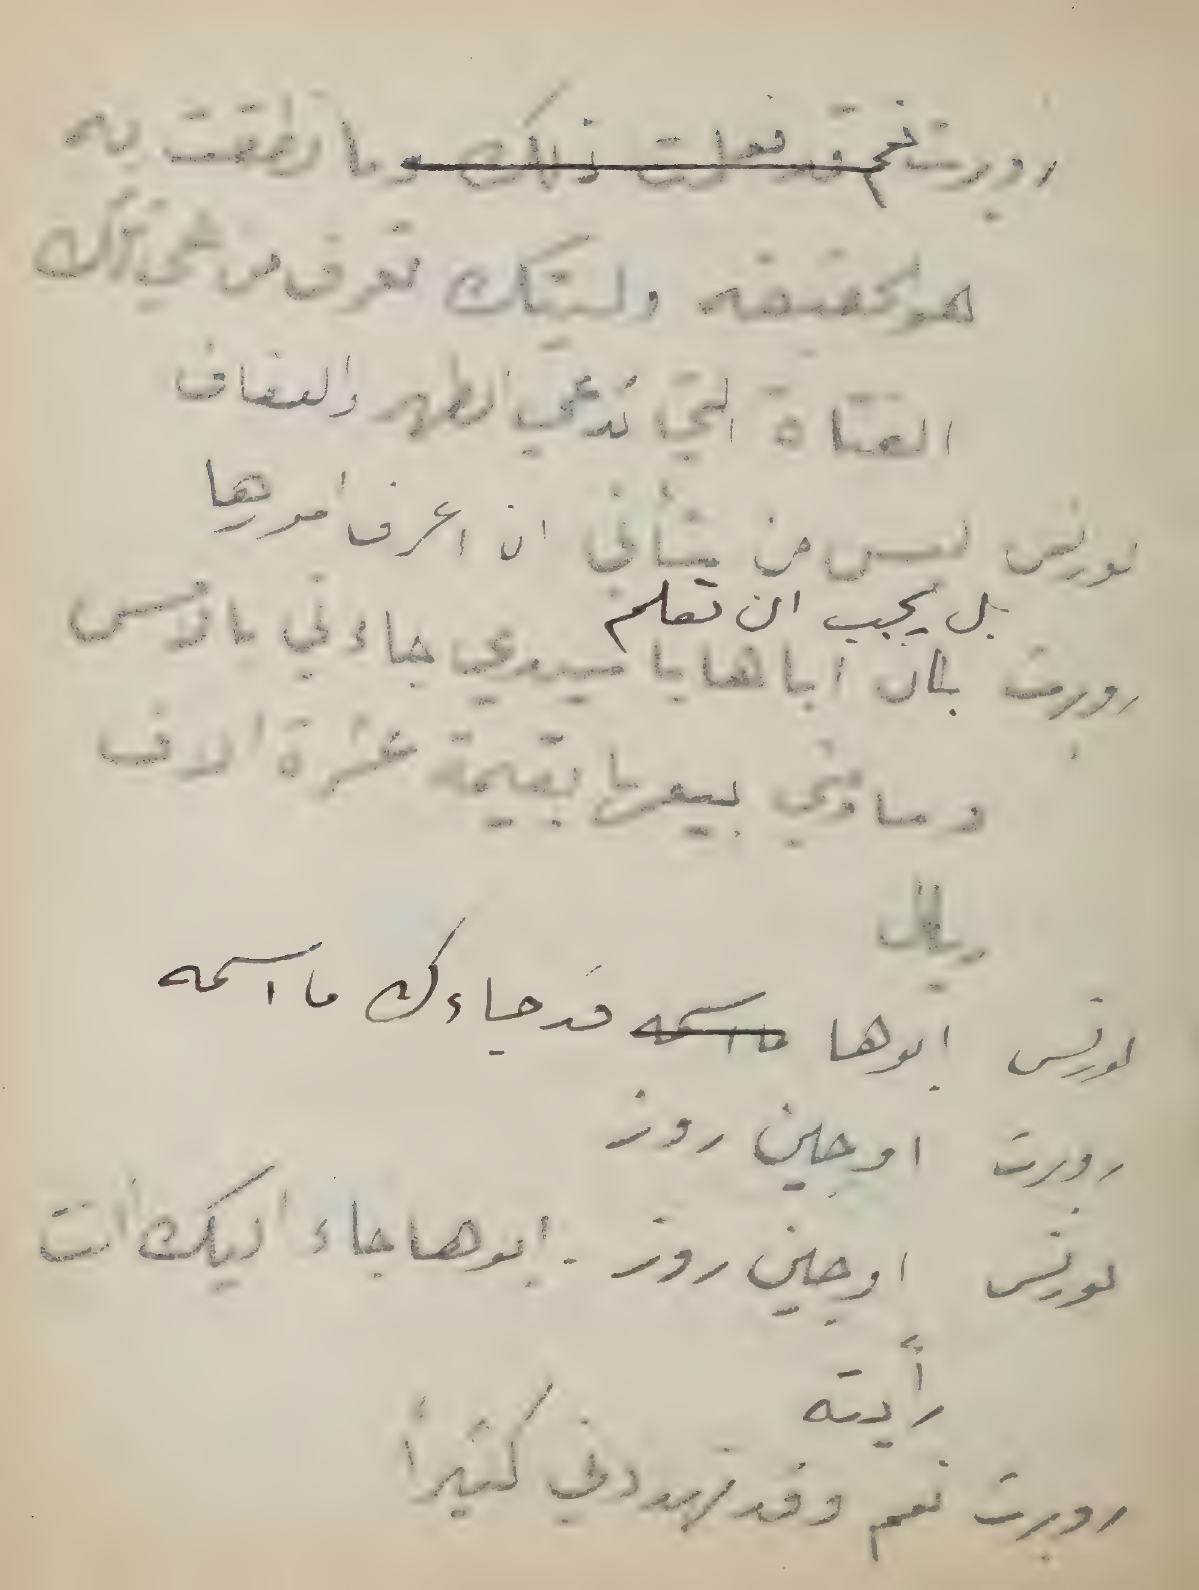 روبرت نعم قد فعلت ذلك وما نطقت به
هو الحقيقه وليتك تعرف من هي تلك
الفتاة التي تدعي الطهر والعفاف
لورنس ليس من شأني ان اعرف امورها
بل يجب ان تعلم
روبرت بان اباها يا سيدي جاءني بالامس
وساومني ببيعها بقيمة عشرة الاف
ريال
لورنس ابوها ما اسمه قد جاءك ما اسمه
روبرت اوجين روز
لورنس اوجين روز . ابوها جاء اليك أانت
رأيته
روبرت نعم وقد تهددني كثيراً